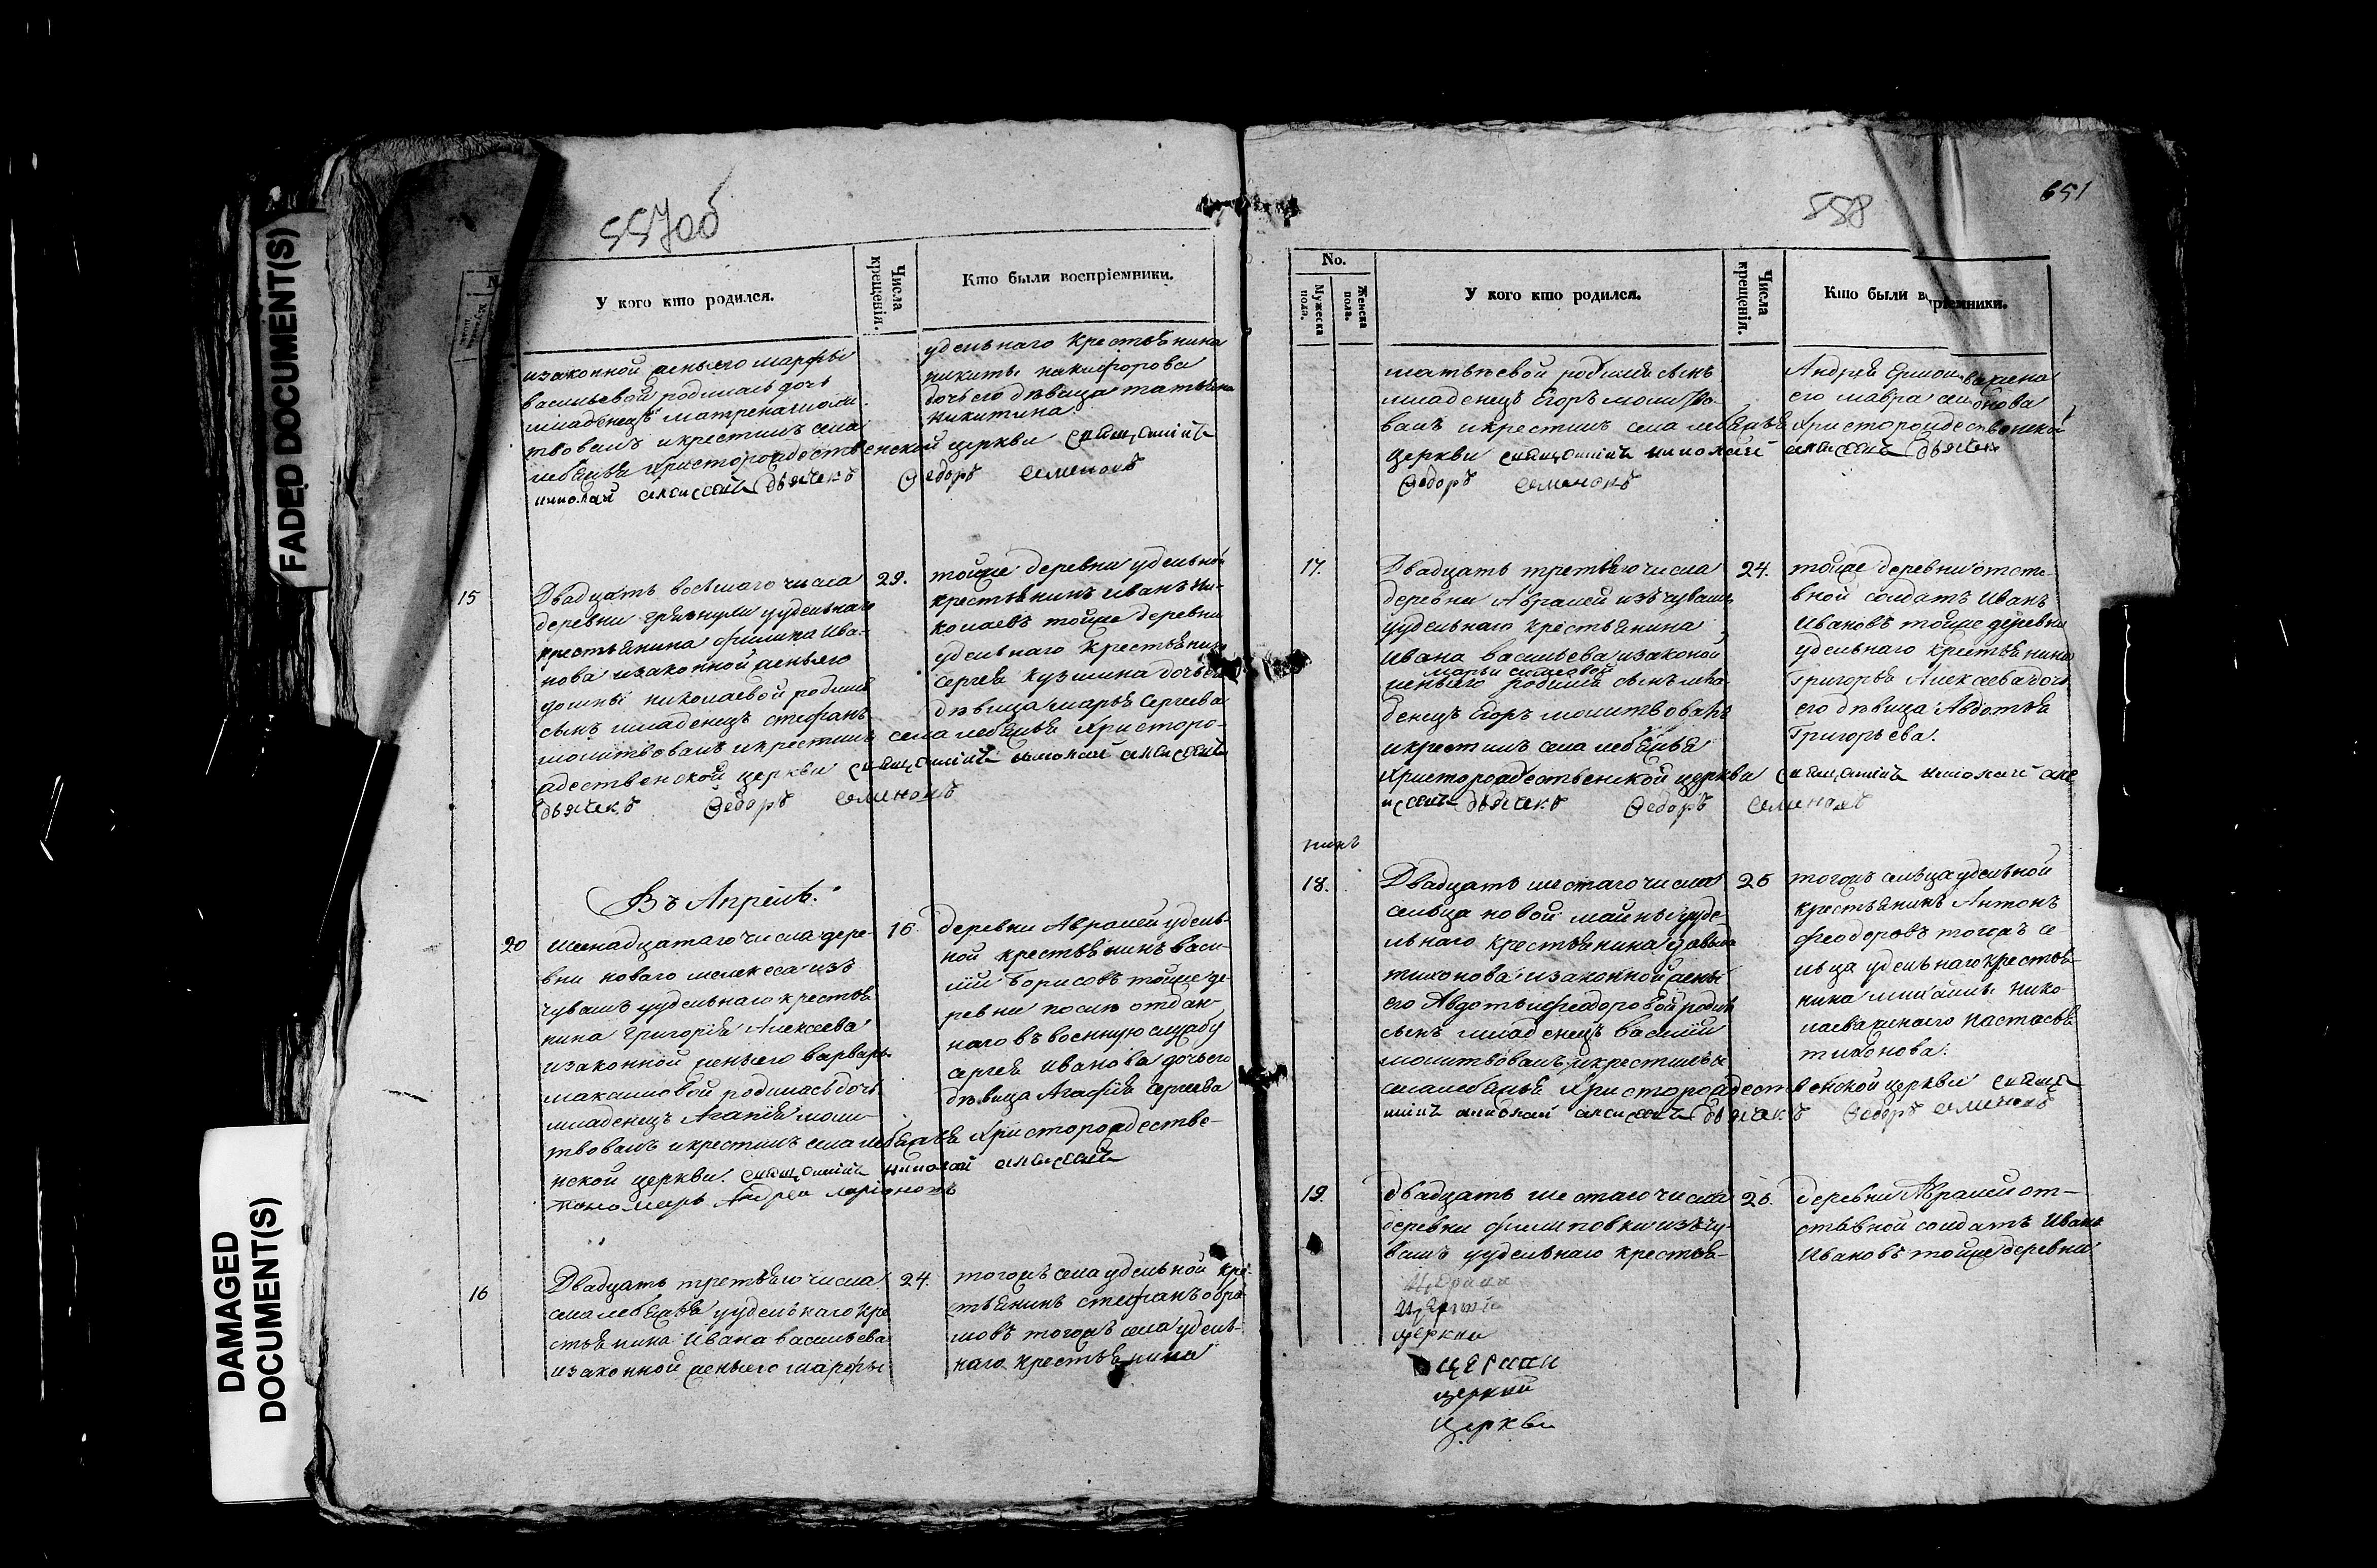 FADED DOCUMENT(S)
DAMAGED
DOCUMENT(S)
557об
У кого кто родился.
Числа
крещенія.
Кто были воспріемники.
изаконной жены его марфы
васильевой родилась дочь
младенецъ матрена моли
твовалъ и крестилъ села
лебяжья христорождественской церкви священникъ
николай алексеевъ дьячекъ Ѳедоръ семеновъ
удельнаго крестьянина
никиты никифорова
дочь его дѣвица татьяна
никитина
15
Двадцать восьмаго числа
деревни грязнухи у удельнаго
крестьянина филипа Ива-
нова изаконной жены его
домны николаевой родился
сынъ младенецъ стефанъ
молитвовалъ и крестилъ села лебяжья Христоро-
ждественской церкви священникъ николай алексеевъ
дьячекъ Ѳедоръ семеновъ
29.
тойже деревни удельной
крестьянинъ иванъ ни-
колаевъ тойже деревни
удельнаго крестьянина
сергея кузмина дочь его
дѣвица марья Сергеева
Въ Апрѣле.
20
шеснадцатаго числа дере-
вни новаго мелекеса изъ
чувашъ у удельнаго крестья
нина григорья Алексеева
изаконной жены его варвары
максимовой родилась дочь
младенецъ Агапия моли-
твовалъ и крестилъ села лебяжья Христорождестве-
нской церкви. священникъ николай алексеевъ
пономарь Андрей ларіоновъ
16
деревни Авралей удель-
ной крестьянинъ Васи-
лій Борисовъ тойже де-
ревни после отдан-
наго въ военную службу
сергея Иванова дочь его
дѣвица Агафія Сергеева
16
Двадцать третьяго числа
села лебяжья у удельнаго кре
стьянина Ивана васильева
изаконной жены его марфы
24.
тогожъ села удельной кре-
стьянинъ стефанъ абра-
мовъ тогожъ села удель-
наго крестьянина
558
651
No.
Мужеска
пола.
Женска
пола.
У кого кто родился.
Числа
крещенія.
Кто были воспріемники.
матвеевой родился сынъ
младенецъ Егоръ молитво-
валъ и крестилъ села лебяжья Христорождественской
церкви священникъ николай алексеевъ дьячекъ
Ѳедоръ семеновъ
его мавра
17.
Двадцать третьяго числа
деревни Авралей изъ чувашъ
у удельнаго крестьянина
Ивана васильева изаконой
жены его родился сынъ мла
денецъ Егоръ молитвовалъ
и крестилъ села лебяжья
Христорождественской церкви священникъ николай але
ксеевъ дьячекъ Ѳедоръ семеновъ
24.
тойже деревни отста-
вной солдатъ Иванъ
Ивановъ тойже деревни
удельнаго крестьянина
Григорья Алексеева дочь
его дѣвица Авдотья
Григорьева.
никъ
18.
Двадцать шестаго числа
сельца новой майны у уде-
льнаго крестьянина давыда
тихонова изаконной жены
его Авдотьи феодоровой родился
сынъ младенецъ василій
молитвовалъ и крестилъ
села лебяжья Христорождественской церкви священ
никъ николай алексеевъ дьячекъ Ѳедоръ семеновъ
26
тогожъ сельца удельной
крестьянинъ Антонъ
феодоровъ тогожъ се-
льца удельнаго крестья-
нина михаилы нико
лаева жена его настасья
тихонова.
19.
двадцать шестаго числа
деревни филиповки изъ чу-
вашъ у удельнаго крестья-
26.
деревни Авралей от-
ставной солдатъ Иванъ
Ивановъ тойже деревни
церкви
церкви
церкви
церкви